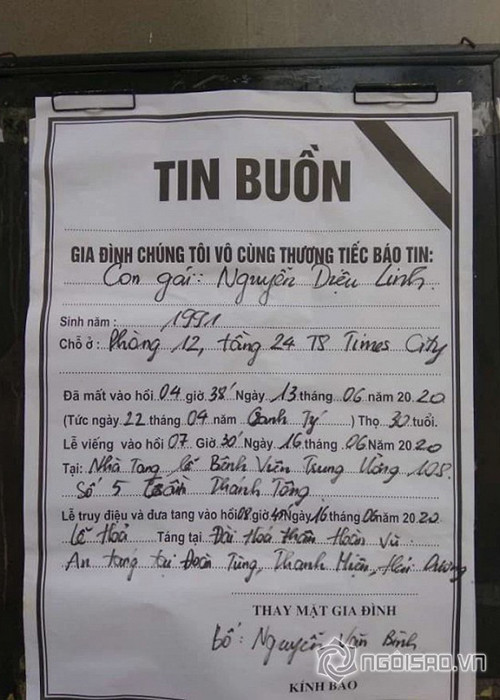 TIN BUỒN
GIA ĐÌNH CHÚNG TÔI VÔ CÙNG THƯƠNG TIẾC BÁO TIN:
Con gái: Nguyễn Diệu Linh
Sinh năm: 1991
Chỗ ở: Phòng 12, tầng 24 T8 Times City
Đã mất vào hồi 04 giờ 38' Ngày 13 tháng 06 năm 2020
(Tức ngày 22 tháng 04 năm Canh Tý) Thọ 30 tuổi.
Lễ viếng vào hồi 07 Giờ 30' Ngày 16 tháng 06 Năm 2020
Tại: Nhà Tang lễ Bệnh Viện Trung Ương 108.
Số 5 Trần Thánh Tông
Lễ truy điệu và đưa tang vào hồi 08 giờ 45' Ngày 16 tháng 06 năm 2020
Lễ Hoả Táng tại Đài Hoá thân Hoàn Vũ
An táng tại Đoàn Tùng, Thanh Miện, Hải Dương
THAY MẶT GIA ĐÌNH
bố: Nguyễn Văn Bình
KÍNH BÁO
NGÔISAO.VN